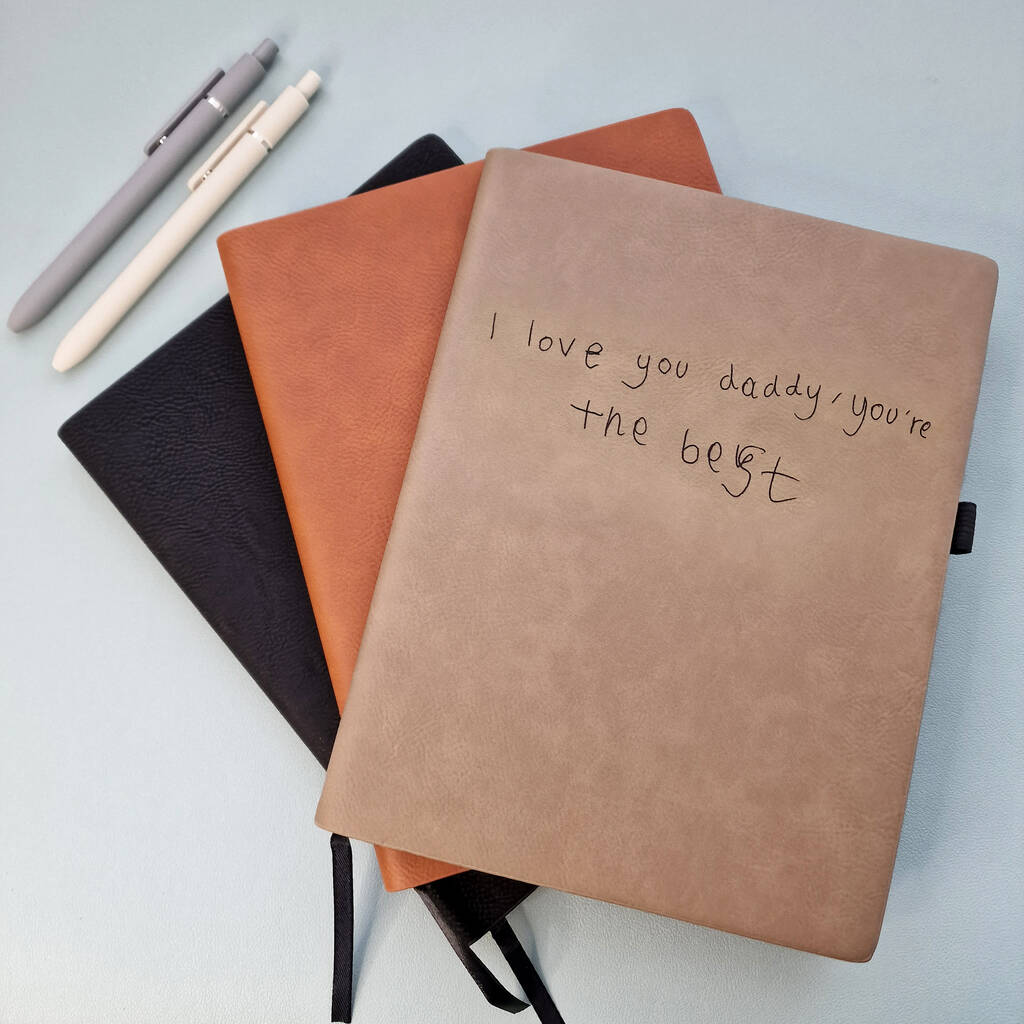 I love you daddy, you're
the best